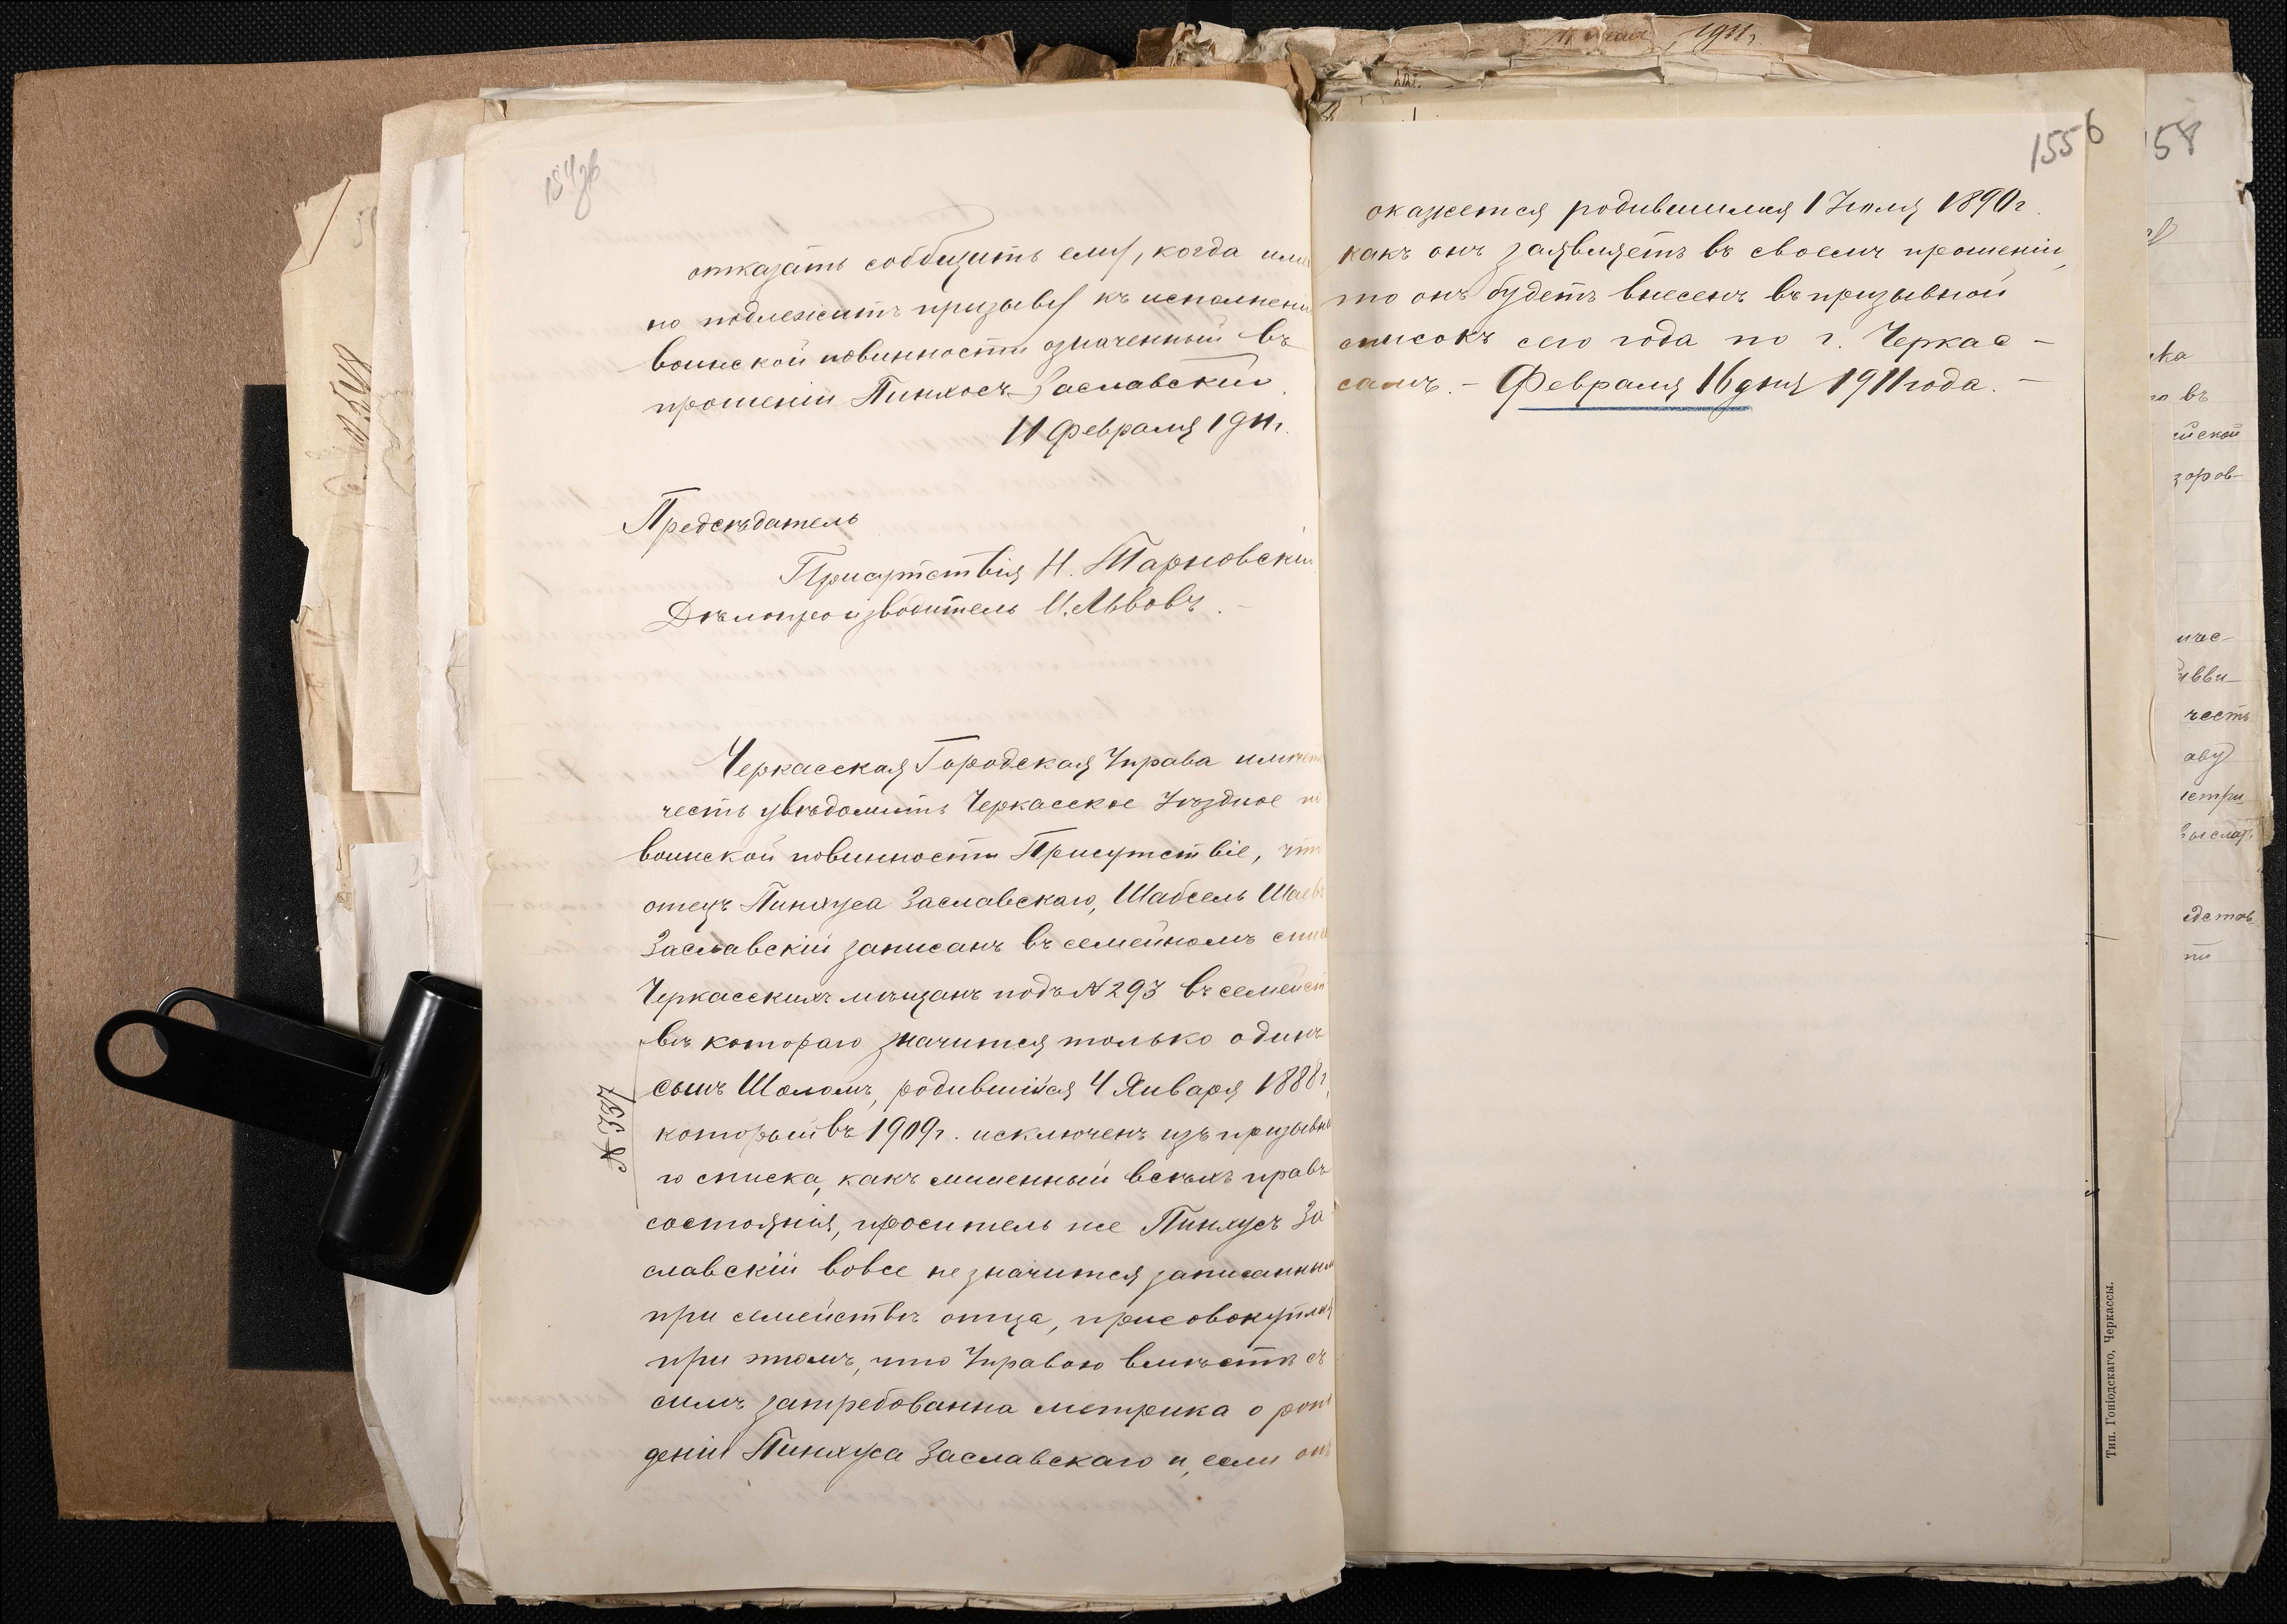 отказать сообщить ему, когда имен
но подлежитъ призыву къ исполнені
воинской повинности означенный въ
прошеніи Пинхосъ Заславскій.
11 Февраля 1911г.
Предсѣдатель
Присутствія Н. Тарновскій
Дѣлопроизводитель И. Львовъ. -
Черкасская Городская Управа имѣетъ
честь увѣдомить Черкасское Уѣздное по
воинской повинности Присутствіе, что
отецъ Пинхуса Заславскаго, Шабсель Шаевъ
Заславскій записанъ въ семейномъ спис
Черкасскихъ мѣщанъ подъ № 293 въ семейст
вѣ котораго значится только одинъ
сынъ Шоломъ, родившійся 4 Января 1888г,
который въ 1909г. исключенъ изъ призывна
го списка, какъ лишенный всѣхъ правъ
состоянія, проситель же Пинхусъ За
славскій вовсе не значится записаннымъ
при семействѣ отца, присовокупляя
при этомъ, что Управою вмѣстѣ съ
симъ затребованна метрика о рож
деніи Пинхуса Заславскаго и, если онъ
№ 337
1556
окажется родившимся 1 Іюля 1890г.
какъ онъ заявляетъ въ своемъ прошеніи,
то онъ будетъ внесенъ въ призывной
списокъ сего года по г. Черкас -
самъ. - Февраля 16 дня 1911 года. -
Тип. Гоніодскаго, Черкассы.
1911г.
58
ика
въ
йской
зоров-
ичес-
честь
аву
метри
выслать